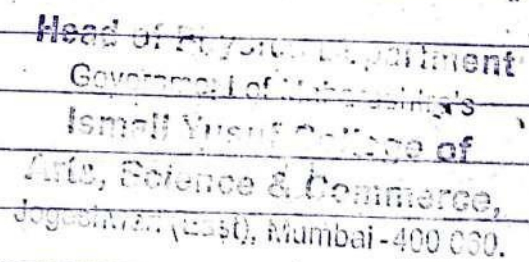 Head of Physics Department
Government of Maharashtra's
Ismail Yusuf College of
Arts, Science & Commerce,
Jogeshwari (East), Mumbai-400 060.